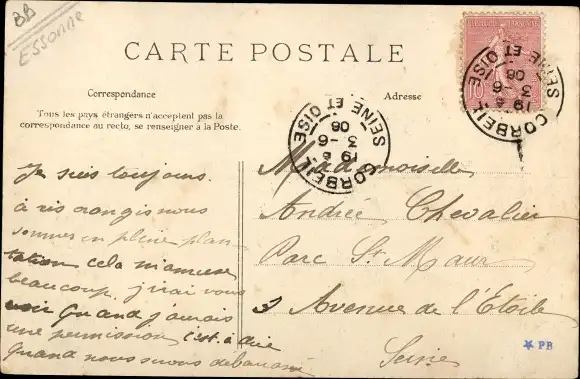 BB
Essonne
CARTE POSTALE
Correspondance
Adresse
Tous les pays étrangers n'acceptent pas la
correspondance au recto, se renseigner à la Poste.
CORBEIL
SEINE ET OISE
19
3 -6
08
CORBEIL
SEINE ET OISE
19
3 -6
08
Je suis toujours
à ris orangis nous
sommes en pleine plan
tation cela m'amuse
beaucoup. j'irai vous
voir quand j'aurais
une permission c'est à dire
quand nous serons débarassé
Mademoiselle
Andrée Chevalier
Parc St Maur
3 Avenue de l'Etoile
Seine
PB